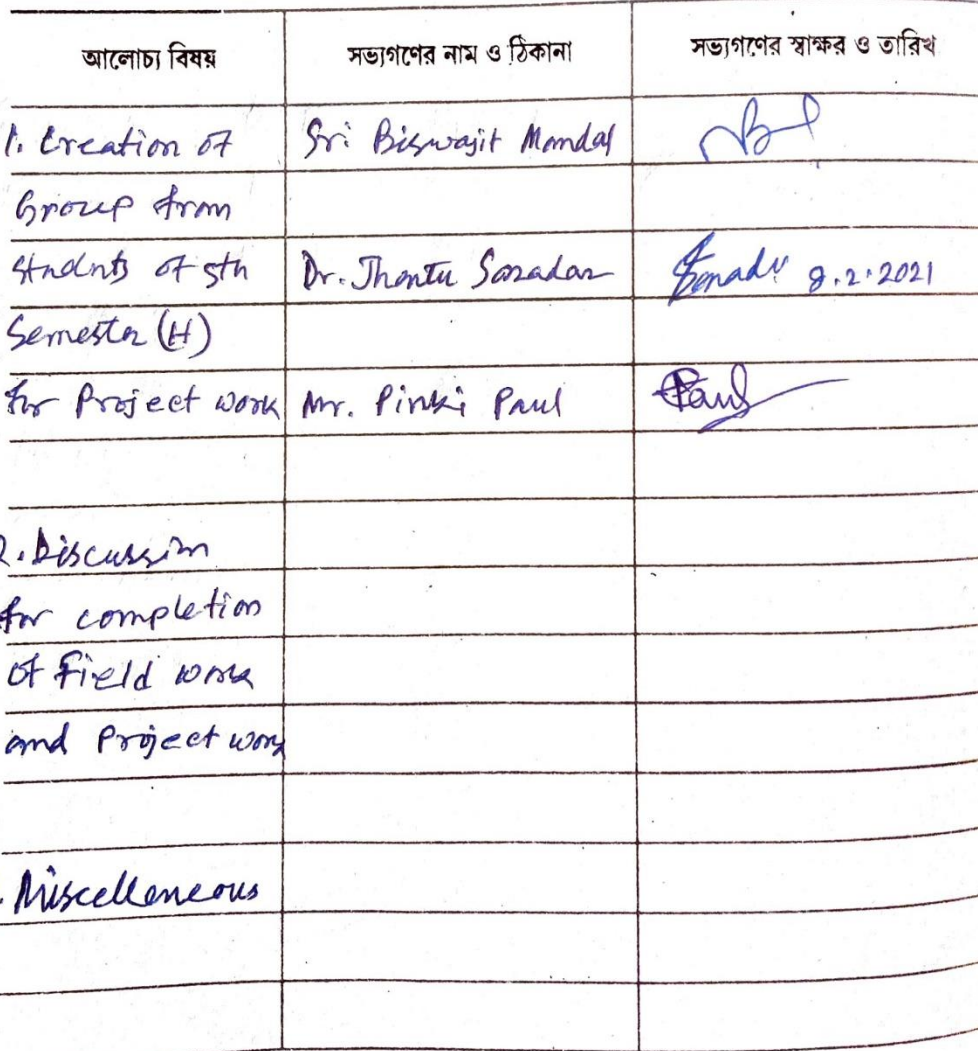 আলোচ্য বিষয় সভ্যগণের নাম ও ঠিকানা সভ্যগণের স্বাক্ষর ও তারিখ
1. Creation of Sri Biswajit Mondal
Group from
Studnts of 5th Dr. Jhantu Saradar 8.2.2021
Semester (H)
for Project work Mr. Pinki Paul Paul
2. Discussion
for completion
of Field work
and Project work
. Miscelleneous